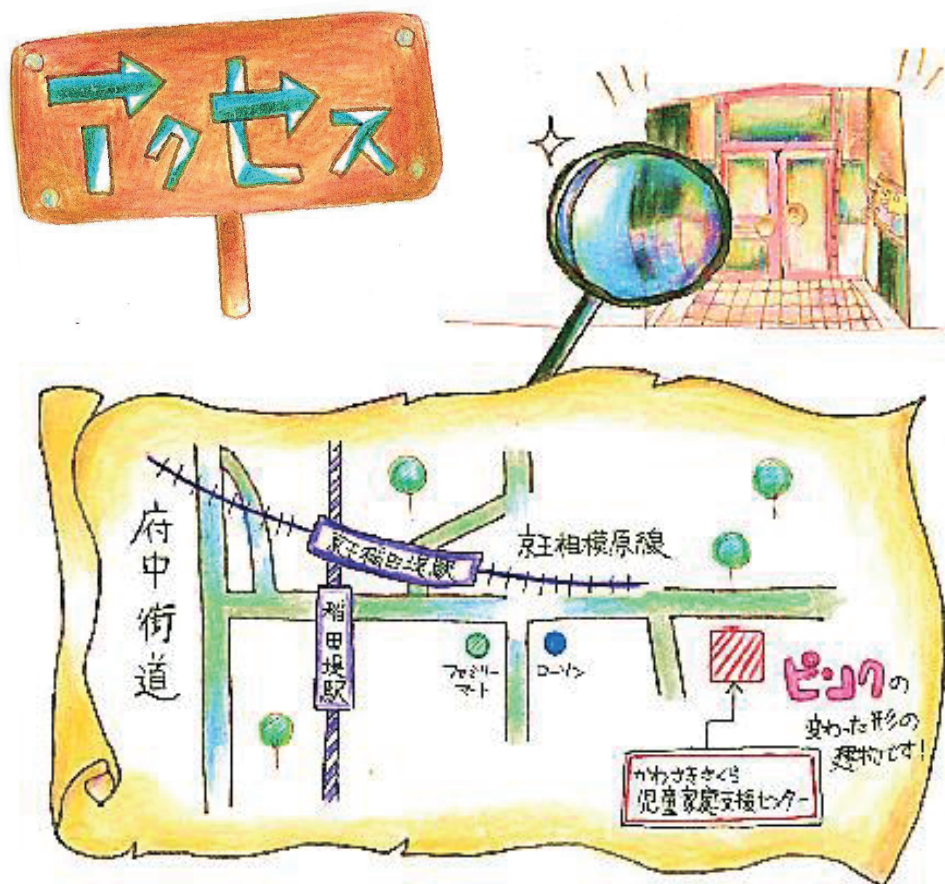 アクセス
府中街道
京王稲田堤駅
京王相模原線
稲田堤駅
ファミリー
マート
ローソン
ピンクの
変わった形の
建物です!
かわさきさくら
児童家庭支援センター